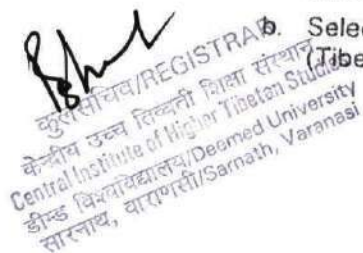 b. Selec
(Tibe
कुलसचिव/REGISTRAR
केन्द्रीय उच्च तिब्बती शिक्षा संस्थान
Central Institute of Higher Tibetan Studies
डीम्ड विश्वविद्यालय/Deemed University
सारनाथ, वाराणसी/Sarnath, Varanasi